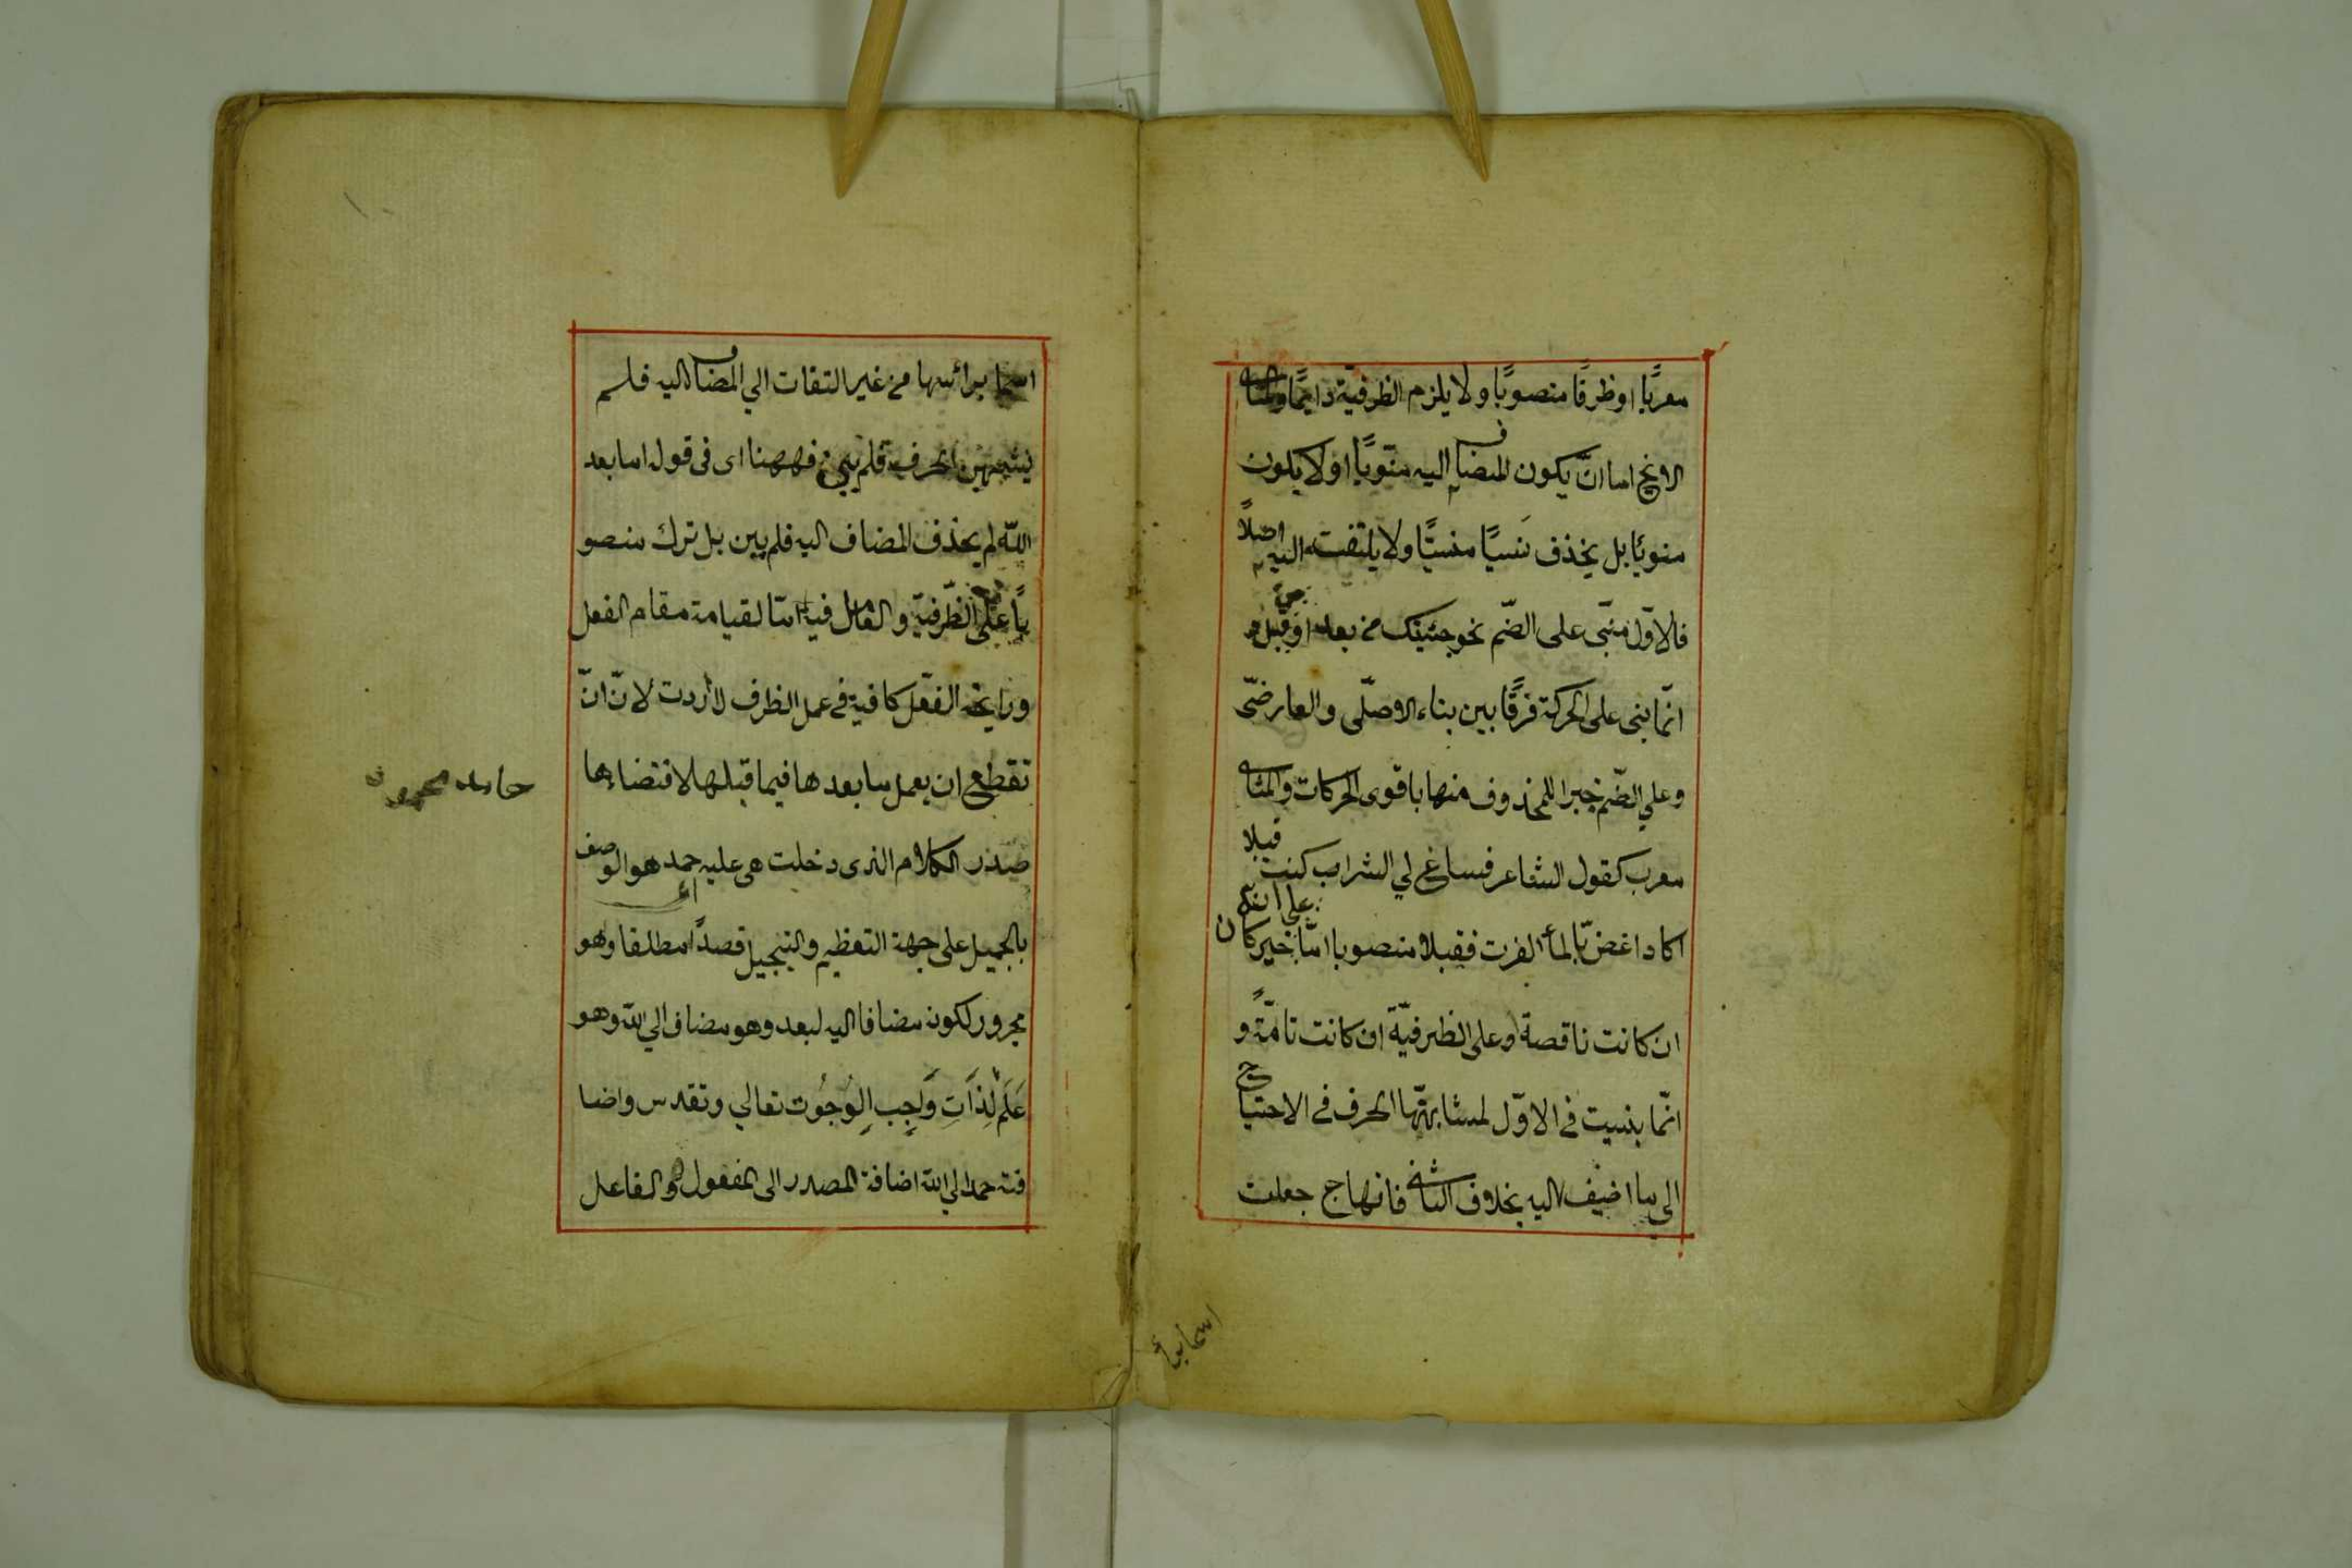 معربًا اوظرفًا منصوبًا ولا يلزم الظرفية دايمًا والثانى
لانخ اما انّ يكون المضاف اليه منويًا اولا يكون
منويًا بل يحذف نسيًا منسيًا ولا يلتفت اليه اصلاً
فالاوّل مبنى على الضّم نحو جئتك من بعد او قبل و
انّما بنى على الحركة فرقًا بين بناء الاوصلّى والعارضىّ
وعلي الضّم جبرا للمحذوف منها باقوى الحركات والثانى
معرب كقول الشاعر فساغ لي الشراب كنت قبلا
اكاد اغضّ بالمأ الفرت فقبلا منصوبا امّا خبر كان على انه
ان كانت ناقصة وعلى الظرفيّة ان كانت تامّةً و
انّما بنيت فى الاوّل لمشابهتّها الحرف فى الاحتياج
الى ما اضيف اليه بخلاف الثانى فانها ح جعلت
اسما برأ
اسما برائسها من غير التفات الي المضاف اليه فلم
الحرف فلم يبن فههنا اى فى قول اما بعد
اللّه لم يحذف المضاف اليه فلم يبن بل ترك منصو
بًا على الظّرفيّة والعامل فيه امّا لقيامة مقام الفعل
ورايحة الفعّل كافية فى عمل الظرف لاأردت لانّ انّ
تقطع ان يعمل ما بعدها فيما قبلها لاقتضاها
صدر الكلام الذى دخلت هى عليه حمد هو الوصف
بالجميل على جهة التعظيم والتبجيل قصدًا مطلقا وهو
مجرور لكونه مضافا اليه لبعد وهو مضاف الي اللّه وهو
عَلَم لِذَاتِ وَاجِب الوُجُوُت تعالي وتقدس واضا
فته حمد الي اللّه اضافة المصدر الى المفعول والفاعل
حامد محمود